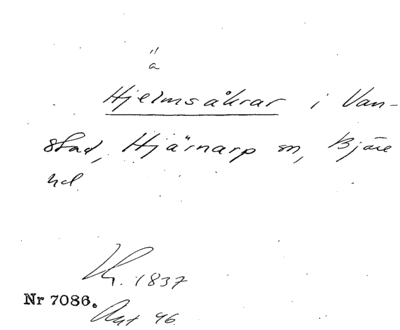 ä
Hjelmsåkrar i Van-
stad, Hjärnarp sn, Bjäre
hd
1837
Nr 7086.
Akt 46